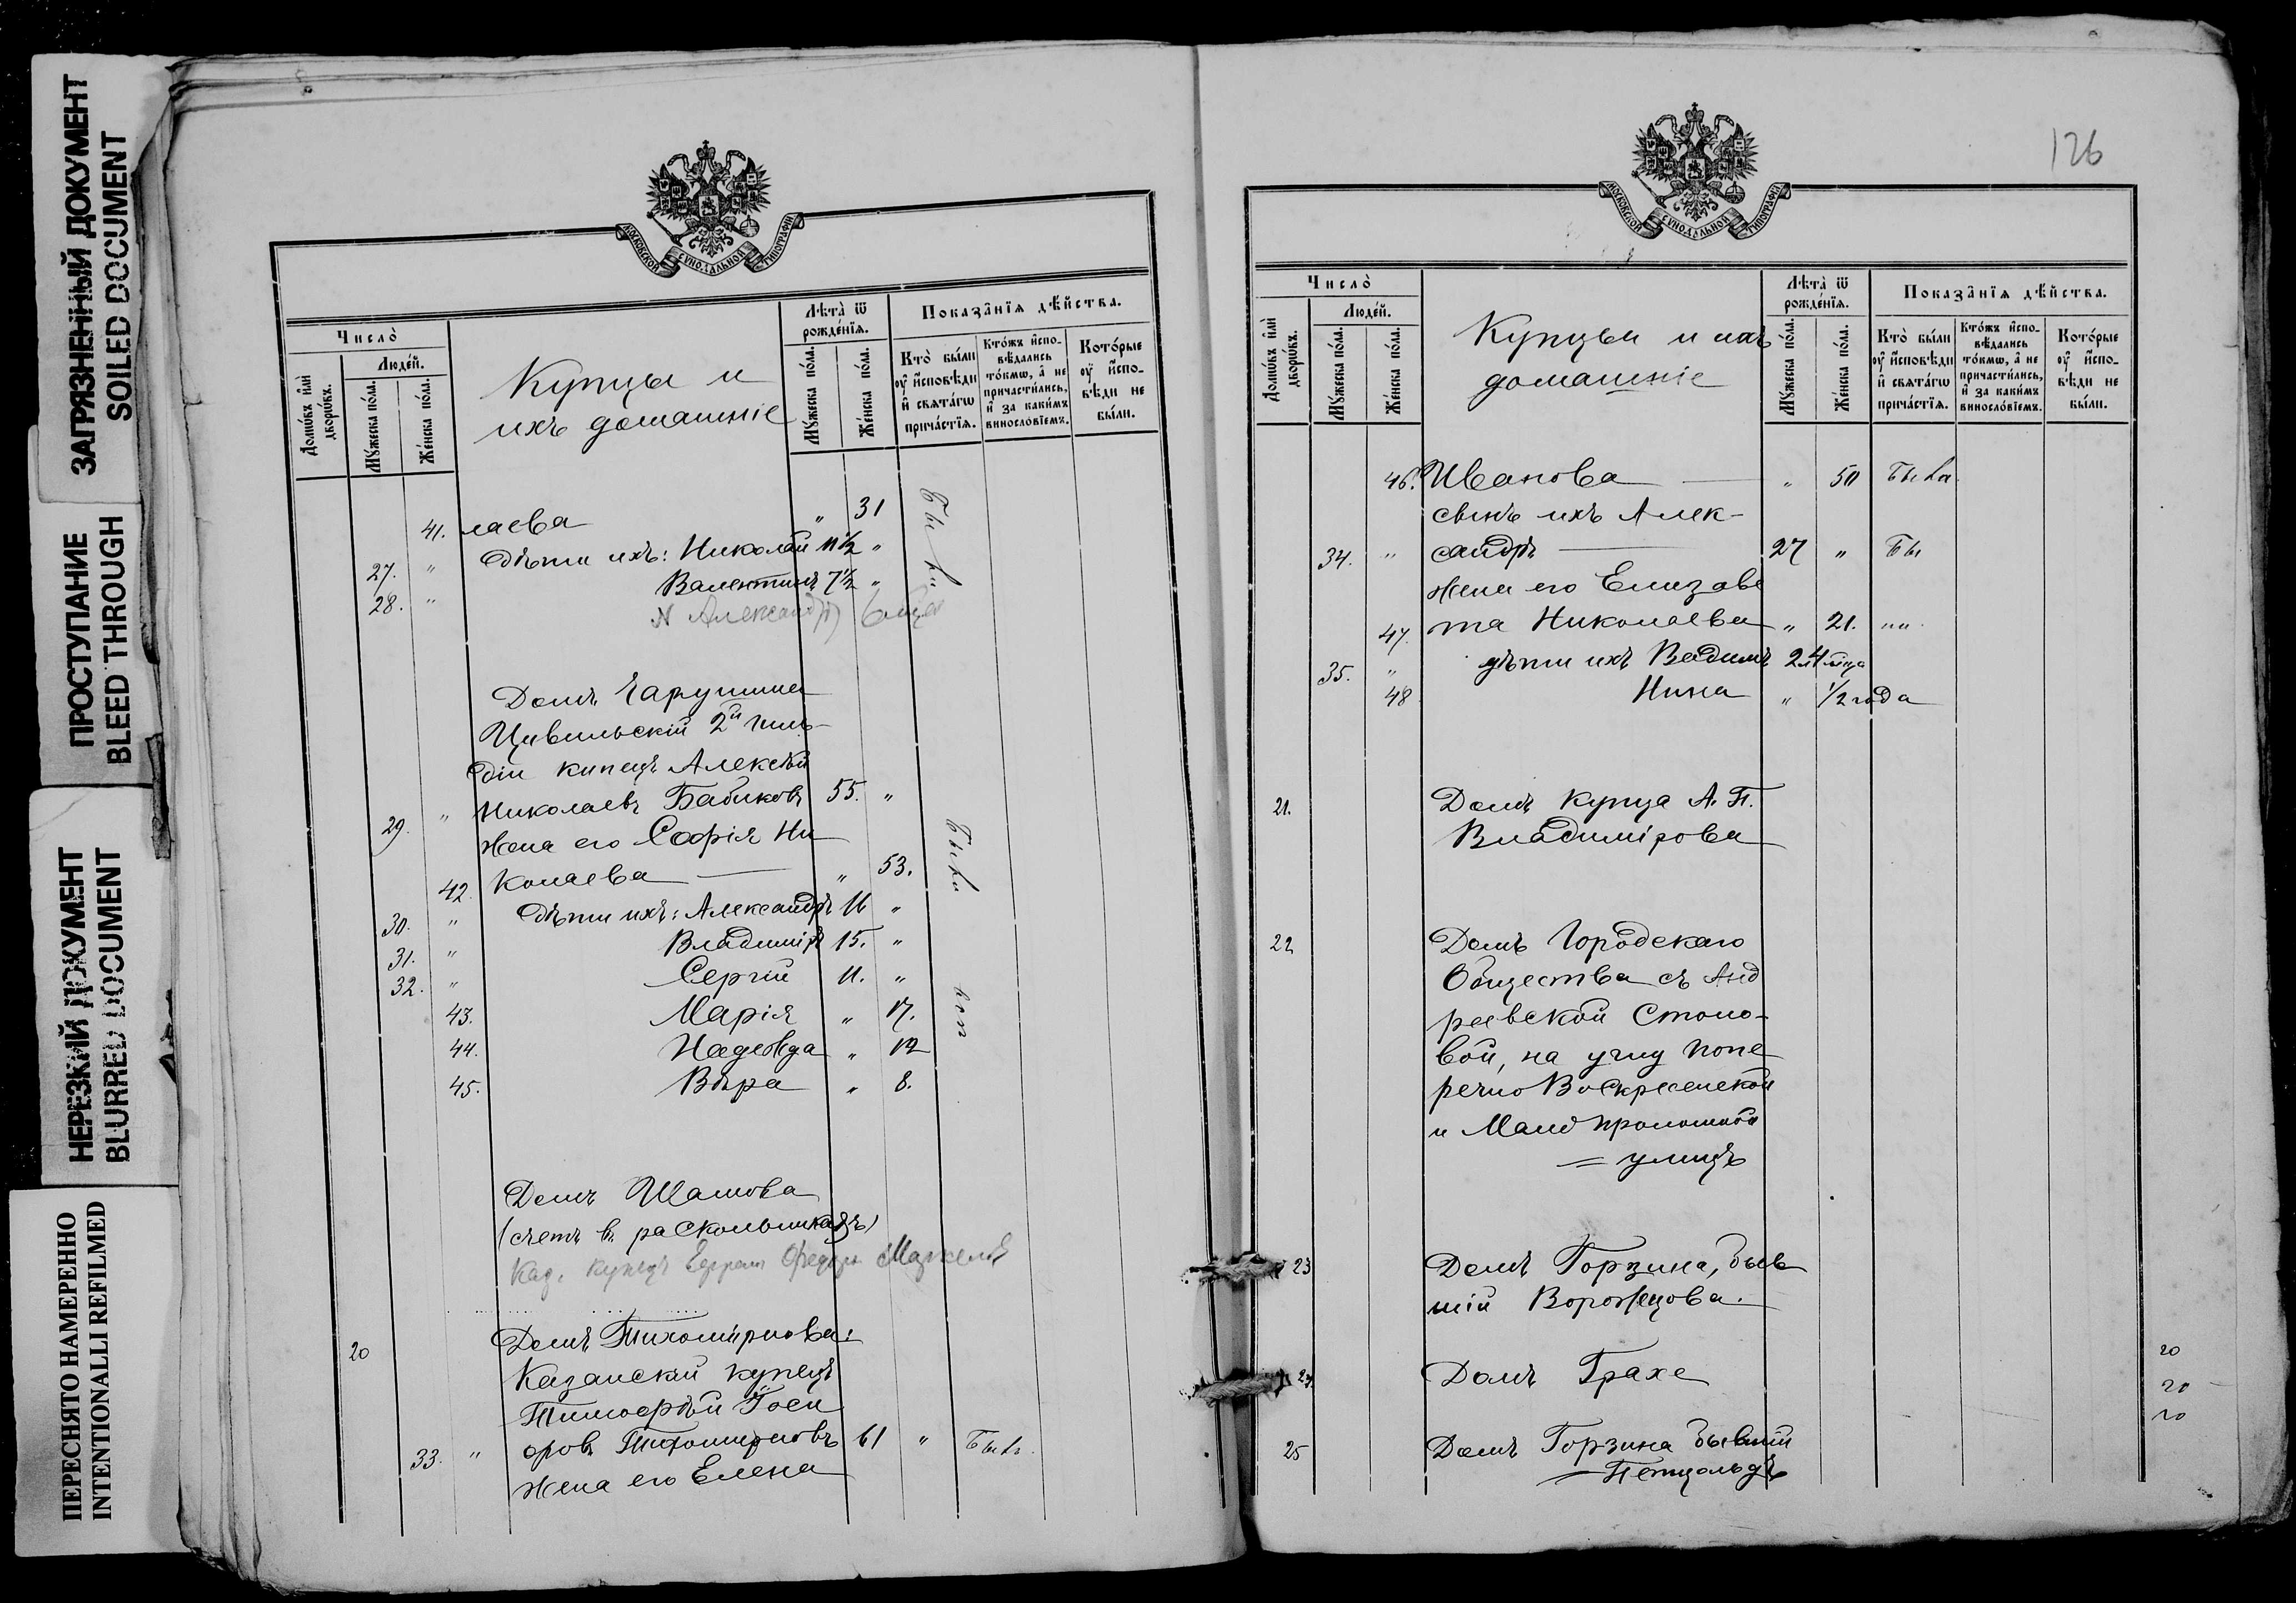 ЗАГРЯЗНЕННЫЙ ДОКУМЕНТ
SOILED DOCUMENT
ПРОСТУПАНИЕ
BLEED THROUGH
НЕРЕЗКИЙ ДОКУМЕНТ
BLURRED DOCUMENT
ПЕРЕСНЯТО НАМЕРЕННО
INTENTIONALLI REFILMED
МОСКОВСКОЙ СУНОДАЛЬНОЙ ТИПОГРАФІИ
Число̀
Домѡ́въ и҆лѝ дворѡ́въ.
Люде́й.
Мꙋ́жеска по́ла.
Же́нска по́ла.
Купцы и
ихъ домашніе
Лѣ́та ѿ рожде́нїѧ.
Мꙋ́жеска по́ла.
Же́нска по́ла.
Показа̑нїѧ дѣ́йства.
Кто̀ бы́ли ᲂу҆ и҆сповѣ́ди и҆ ст҃а́гѡ прича́стїѧ.
Кто́жъ и҆спо-вѣ́дались то́кмѡ, а҆ не причасти́лись, и҆ за каки́мъ виносло́вїемъ.
Кото́рые ᲂу҆ и҆спо-вѣ́ди не бы́ли.
41. лаева " 31
27. " дѣти ихъ: Николай 11½ "
28. " Валентинъ 7½ "
Александръ
Были
Домъ Чарушина
Цивильскій 2й гиль-
діи купецъ Алексѣй
29. " Николаевъ Бабиковъ 55. "
жена его Софія Ни
42. колаева " 53.
30. " дѣти ихъ: Александръ 16 "
31. " Владиміръ 15. "
32. " Сергій 11. "
43. Марія " 17.
44. Надежда " 12
45. Вѣра " 8.
Были
Домъ Шамова
(счетъ въ раскольникахъ)
Каз. купецъ Ефремъ Федоръ
20 Домъ Тихомирнова:
Казанскій купецъ
Тимофѣй Госи
33. " форовъ Тихомирновъ 61 " Былъ.
жена его Елена
126
МОСКОВСКОЙ СУНОДАЛЬНОЙ ТИПОГРАФІИ
Число̀
Домѡ́въ и҆лѝ дворѡ́въ.
Люде́й.
Мꙋ́жеска по́ла.
Же́нска по́ла.
Купцы и ихъ
домашніе
Лѣ́та ѿ рожде́нїѧ.
Мꙋ́жеска по́ла.
Же́нска по́ла.
Показа̑нїѧ дѣ́йства.
Кто̀ бы́ли ᲂу҆ и҆сповѣ́ди и҆ ст҃а́гѡ прича́стїѧ.
Кто́жъ и҆спо-вѣ́дались то́кмѡ, а҆ не причасти́лись, и҆ за каки́мъ виносло́вїемъ.
Кото́рые ᲂу҆ и҆спо-вѣ́ди не бы́ли.
46. Иванова " 50 Была
сынъ ихъ Алек-
34. " сандръ 27 " Бы
жена его Елизаве
47. та Николаева " 21. "
35. " дѣти ихъ Вадимъ 2 л 4 мѣца
48 Нина " ½ года
21. Домъ Купца А. П.
Владимірова
22 Домъ Городскаго
Общества съ Анд
реевской Столо-
вой, на углу попе
речно Воскресенской
и Мало проломной
улицъ
23 Домъ Горзина, быв
шій Ворожцова.
24. Домъ Грахе
25 Домъ Горзина бывшій
Петцольдъ
20
20
20